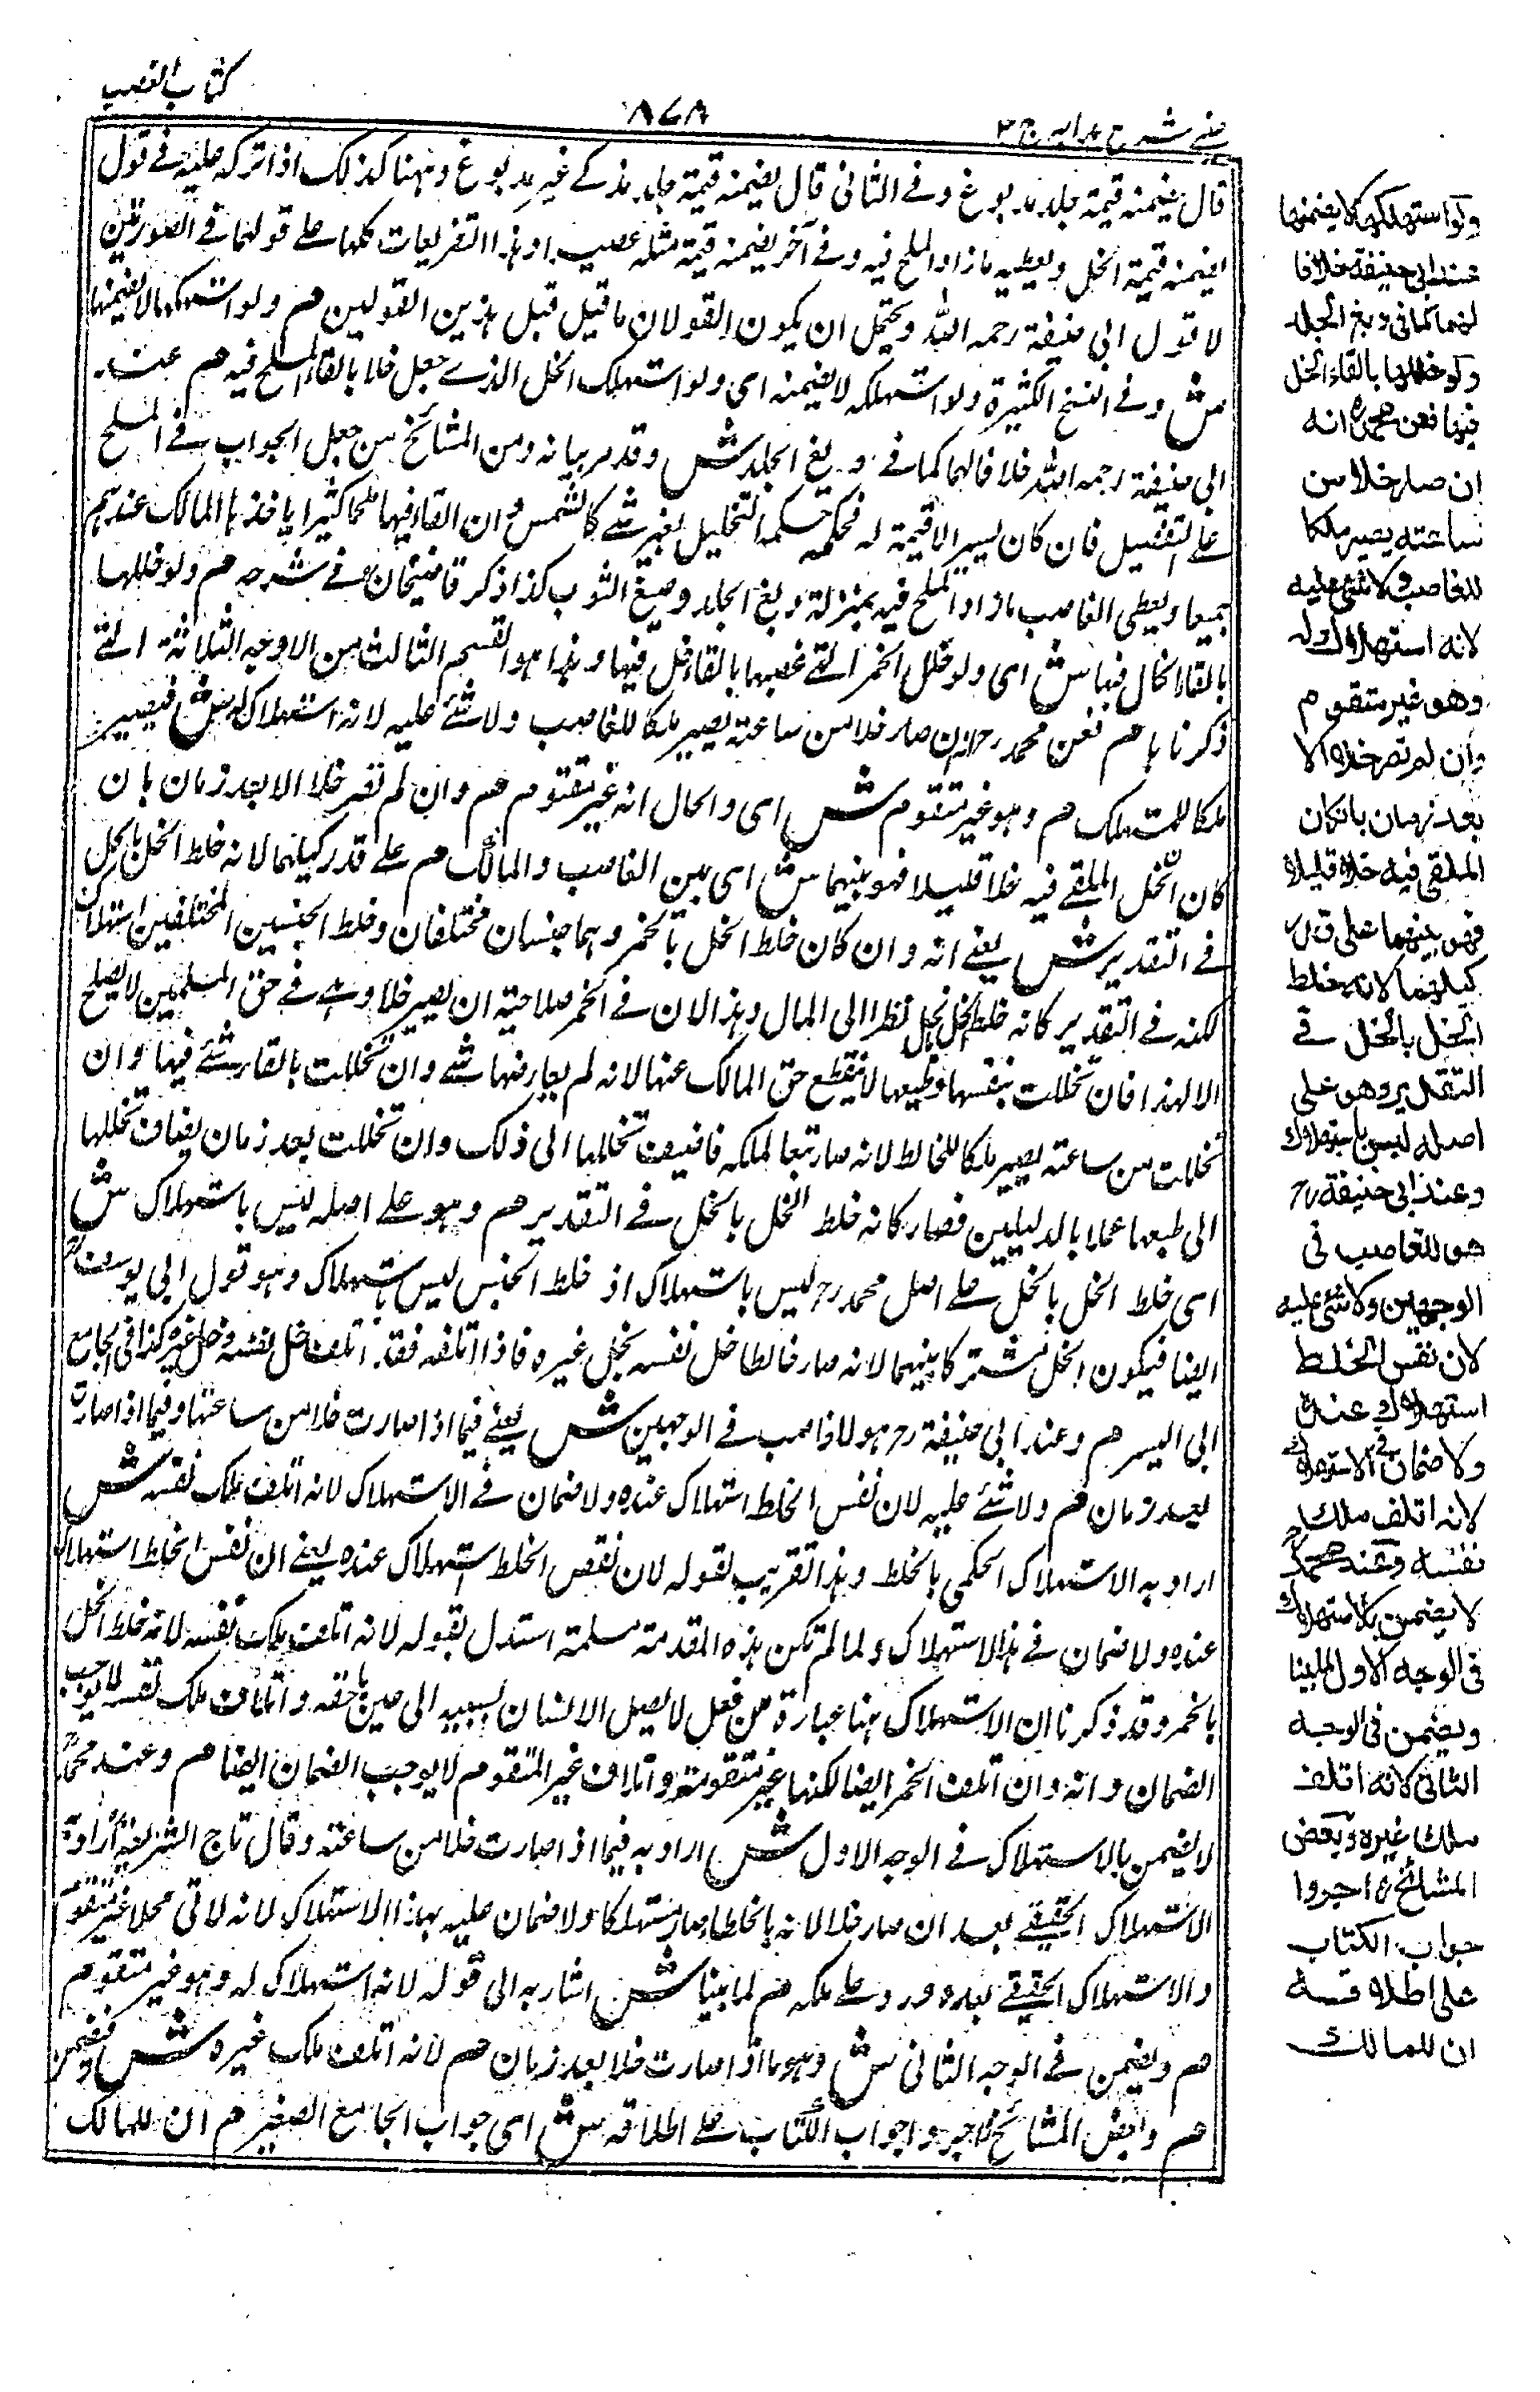 كتاب الغصب
٨٤٨
عينى شرح هدايه ج ٣
قال يضمنه قيمة جلد مدبوغ وفى الثانى قال يضمنه قيمة جلد ذكى غير مدبوغ وههنا كذلك اذا تركه عليه فى قول
يضمنه قيمة الخل ويعطيه ما زاد الملح فيه وفى آخر يضمنه قيمة مثله عصيرا وهذا التفريعات كلها على قولهما فى الصورتين
لا قول ابى حنيفة رحمه الله ويحتمل ان يكون القولان ما قيل قبل هذين القولين هم ولو استهلكها لا يضمنها
ش وفى النسخ الكثيرة ولو استهلكه لا يضمنه اى ولو استهلك الخل الذى جعل خلا بالقاء الملح فيه هم عند
ابى حنيفة رحمه الله خلافا لهما كما فى دبغ الجلد ش وقد مر بيانه ومن المشائخ من جعل الجواب فى الملح
على التفصيل فان كان يسيرا لا قيمة له فحكمه حكم التخليل بغير شئ كالشمس وان القاء فيها ملحا كثيرا ياخذها المالك عندهم
جميعا ويعطى الغاصب ما زاد الملح فيه بمنزلة دبغ الجلد وصبغ الثوب كذا ذكر قاضيخان فى شرحه هم ولو خللها
بالقاء الخل فيها ش اى ولو خلل الخمر التى غصبها بالقاء خل فيها وهذا هو القسم الثالث من الاوجه الثلاثة التى
ذكرناها هم فعن محمد رح انه ان صار خلا من ساعته يصير ملكا للغاصب ولا شئ عليه لانه استهلاك له ش فيصير
ملكا للمستهلك هم وهو غير متقوم ش اى والحال انه غير متقوم هم وان لم تصر خلا الا بعد زمان بان
كان الخل الملقى فيه خلا قليلا فهو بينهما ش اى بين الغاصب والمالك هم على قدر كيلهما لانه خلط الخل بالخل
فى التقدير ش يعنى انه وان كان خلط الخل بالخمر وهما جنسان مختلفان وخلط الجنسين المختلفين استهلاك
لكنه فى التقدير كانه خلط الخل بخل نظرا الى المال وهذا لان فى الخمر صلاحية ان يصير خلا وهى فى حق المسلمين لا يصلح
الا لهذا فان تخللت بنفسها وطبعها لا ينقطع حق المالك عنها لانه لم يعارضها شئ وان تخللت بالقاء شئ فيها وان
تخللت من ساعته يصير ملكا للخالط لانه صار تبعا لملكه فاضيف تخللها الى ذلك وان تخللت بعد زمان يضاف تخللها
الى طبعها عملا بالدليلين فصار كانه خلط الخل بالخل فى التقدير هم وهو على اصله ليس باستهلاك ش
اى خلط الخل بالخل على اصل محمد رح ليس باستهلاك اذ خلط الجنس ليس باستهلاك وهو قول ابى يوسف رح
ايضا فيكون الخل مشتركا بينهما لانه صار خالطا خل نفسه بخل غيره فاذا اتلفه فقد اتلف خل نفسه وخل غيره كذا فى الجامع
ابى اليسر هم وعند ابى حنيفة رح هو للغاصب فى الوجهين ش يعنى فيما اذا صارت خلا من ساعتها وفيما اذا صارت
بعد زمان هم ولا شئ عليه لان نفس الخلط استهلاك عنده ولا ضمان فى الاستهلاك لانه اتلف ملك نفسه ش
اراد به الاستهلاك الحكمى بالخلط وهذا تقريب لقوله لان نفس الخلط استهلاك عنده يعنى ان نفس الخلط استهلاك
عنده ولا ضمان فى هذا الاستهلاك ولما لم تكن هذه المقدمة مسلمة استدل بقوله لانه اتلف ملك نفسه لانه خلط الخل
بالخمر وقد ذكرنا ان الاستهلاك هنا عبارة عن فعل لا يصل الانسان بسببه الى عين حقه واتلاف ملك نفسه لا يوجب
الضمان وانه وان اتلف الخمر ايضا لكنها غير متقومة واتلاف غير المتقوم لا يوجب الضمان ايضا هم وعند محمد رح
لا يضمن بالاستهلاك فى الوجه الاول ش اراد به فيما اذا صارت خلا من ساعته وقال تاج الشريعة اراد به
الاستهلاك الحقيقى بعد ان صار خلا لانه بالخلط صار مستهلكا ولا ضمان عليه بهذا الاستهلاك لانه لاقى محلا غير متقوم
والاستهلاك الحقيقى بعده ورد على ملكه هم لما بينا ش اشار به الى قوله لانه استهلاك له وهو غير متقوم
هم ويضمن فى الوجه الثانى ش وهو ما اذا صارت خلا بعد زمان هم لانه اتلف ملك غيره ش
هم وبعض المشائخ اجروا جواب الكتاب على اطلاقه ش اى جواب الجامع الصغير هم ان للمالك
ولو استهلكها لا يضمنها
عند ابى حنيفة خلافا
لهما كما فى دبغ الجلد
ولو خللها بالقاء الخل
فيها فعن محمد رح انه
ان صار خلا من
ساعته يصير ملكا
للغاصب ولا شئ عليه
لانه استهلاك له
وهو غير متقوم
وان لم تصر خلا الا
بعد زمان بان كان
الملقى فيه خلا قليلا
فهو بينهما على قدر
كيلهما لانه خلط
الخل بالخل فى
التقدير وهو على
اصله ليس باستهلاك
وعند ابى حنيفة رح
هو للغاصب فى
الوجهين ولا شئ عليه
لان نفس الخلط
استهلاك عنده
ولا ضمان فى الاستهلاك
لانه اتلف ملك
نفسه وعند محمد رح
لا يضمن بالاستهلاك
فى الوجه الاول لما بينا
ويضمن فى الوجه
الثانى لانه اتلف
ملك غيره وبعض
المشائخ رح اجروا
جواب الكتاب
على اطلاقه
ان للمالك